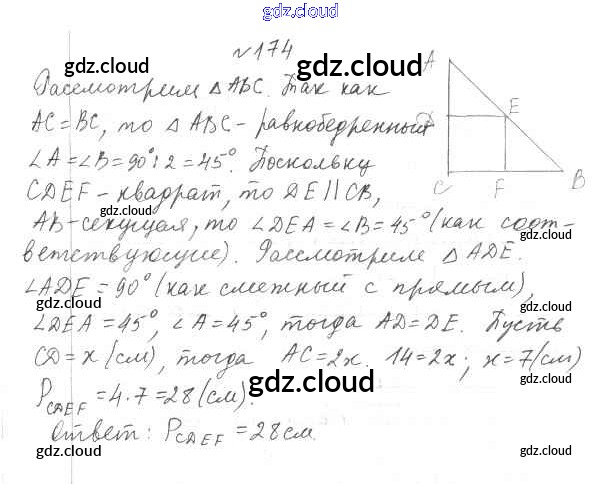 gdz.cloud
№174
Рассмотрим △ABC. Так как
AC=BC, то △ABC - равнобедренный
∠A=∠B=90°:2=45°. Поскольку
CDEF - квадрат, то DE||CB,
AB-секущая, то ∠DEA=∠B=45° (как соот-
ветствующие). Рассмотрим △ADE.
∠ADE=90° (как смежный с прямым),
∠DEA=45°, ∠A=45°, тогда AD=DE. Пусть
CD=x (см), тогда AC=2x. 14=2x; x=7(см)
P CDEF =4·7=28 (см).
Ответ: P CDEF =28 см.
A
D
E
C
F
B
gdz.cloud
gdz.cloud
gdz.cloud
gdz.cloud
gdz.cloud
gdz.cloud
gdz.cloud
gdz.cloud
gdz.cloud
gdz.cloud
gdz.cloud
gdz.cloud
gdz.cloud